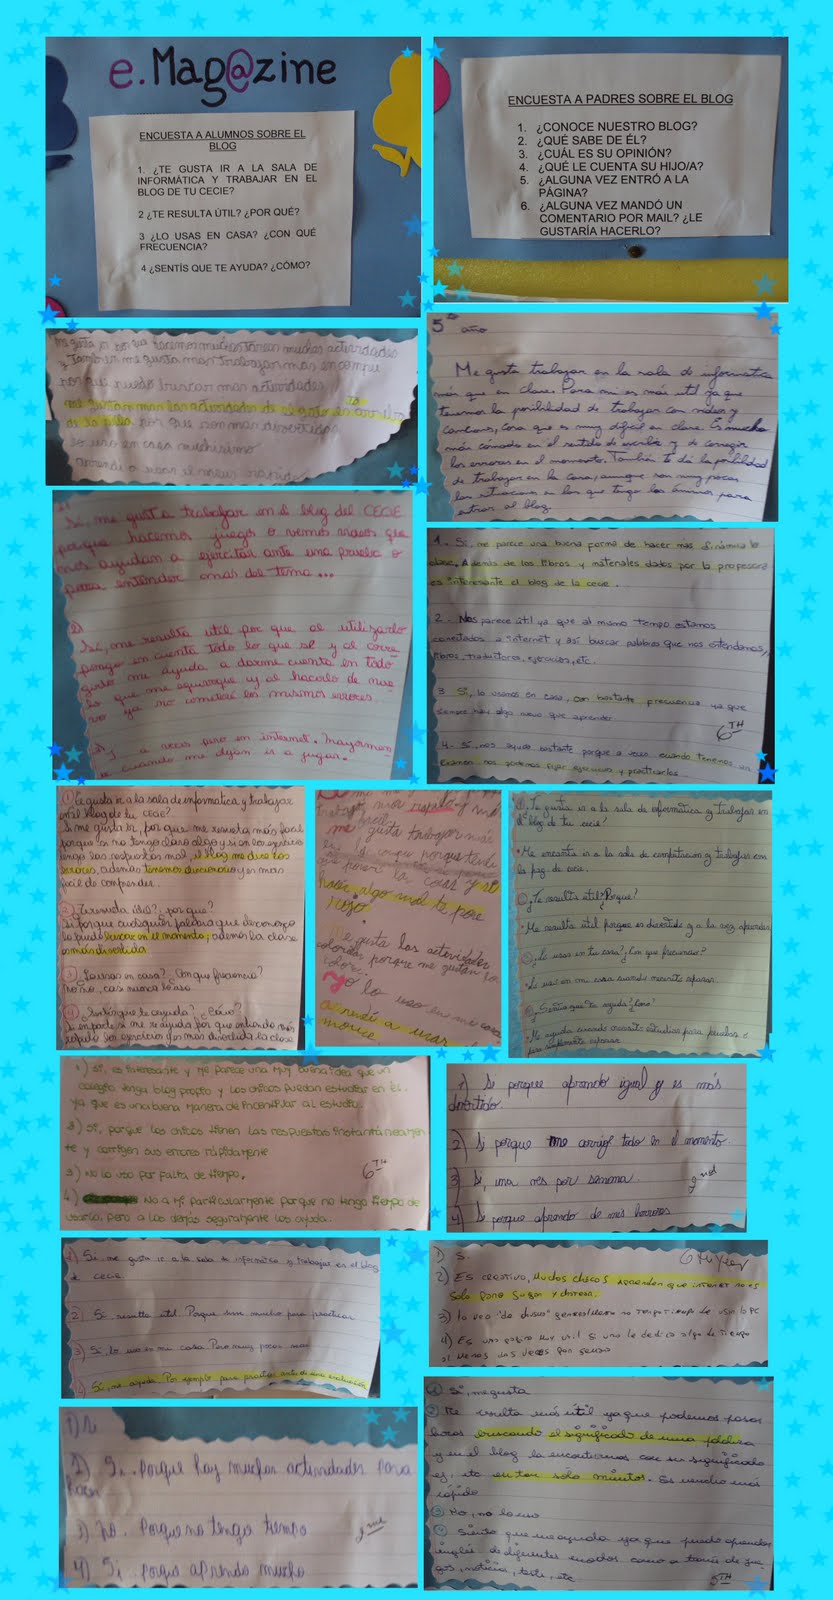 e.Mag@zine
ENCUESTA A ALUMNOS SOBRE EL
BLOG
1. ¿TE GUSTA IR A LA SALA DE
INFORMÁTICA Y TRABAJAR EN EL
BLOG DE TU CECIE?
2 ¿TE RESULTA ÚTIL? ¿POR QUÉ?
3 ¿LO USAS EN CASA? ¿CON QUÉ
FRECUENCIA?
4 ¿SENTÍS QUE TE AYUDA? ¿CÓMO?
ENCUESTA A PADRES SOBRE EL BLOG
1. ¿CONOCE NUESTRO BLOG?
2. ¿QUÉ SABE DE ÉL?
3. ¿CUÁL ES SU OPINIÓN?
4. ¿QUÉ LE CUENTA SU HIJO/A?
5. ¿ALGUNA VEZ ENTRÓ A LA
PÁGINA?
6. ¿ALGUNA VEZ MANDÓ UN
COMENTARIO POR MAIL? ¿LE
GUSTARÍA HACERLO?
me gusta ir por que hacemos muchas tareas muchas actividades
y tambien me gusta mas trabajar mas en compu
por que puedo buscar mas actividades
por que son mas divertidas
lo uso en casa muchisimo
aprendi a usar el maus rapido
5to año
Me gusta trabajar en la sala de informatica
más que en clase. Para mi es más util ya que
tenemos la posibilidad de trabajar con videos y
canciones, cosa que es muy dificil en clase. Es mucho
más cómodo en el sentido de escribir y de corregir
los errores en el momento. También te da la posibilidad
de trabajar en la casa, aunque son muy pocas
las situaciones en las que tengo los ánimos para
entrar al blog.
Si, me gusta trabajar en el blog del CECIE
porque hacemos juegos o vemos videos que
nos ayudan a ejercitar ante una prueba o
para entender mas del tema...
Si, me resulta util por que al utilizarlo
pongo en cuenta todo lo que se y al corre-
girlo me ayuda a darme cuenta en todo
lo que me equivoque y al hacerlo de nue-
vo ya no cometeré los mismos errores
a veces entro en internet. Mayormen-
te cuando me dejan ir a jugar.
1. Si, me parece una buena forma de hacer más dinámica la
clase. Además de los libros y materiales dados por la profesora
es interesante el blog de la cecie.
2. Nos parece útil ya que al mismo tiempo estamos
conectados a internet y así buscar palabras que nos entendamos,
libros, traductores, ejercicios, etc.
3. Si, lo usamos en casa, con bastante frecuencia ya que
siempre hay algo nuevo que aprender
6TH
4. Si, nos ayuda bastante porque a veces cuando tenemos un
examen nos podemos fijar ejercicios y practicarlos
① Te gusta ir a la sala de informatica y trabajar
en el blog de tu cecie?
Si me gusta ir, por que me resulta más facil
porque si no tengo claro algo y si en los ejercicios
tengo las respuestas mal, el blog me dice los
errores, además tenemos diccionario y es mas
facil de comprender.
② Te resulta útil? ¿por que?
Si porque cualquier palabra que desconozco
la puedo buscar en el momento, además la clase
es más divertida
③ ¿Lo usas en casa? ¿Con que frecuencia?
No no, casi nunca lo uso
④ ¿Sentis que te ayuda? ¿Cómo?
me gusta trabajar más
en la compu porque
hacés algo mal te pone
rojo
me gusta las actividades
colores porque me gustan los
colore.
yo lo uso en mi casa
① ¿Te gusta ir a la sala de informática y trabajar en
el blog de tu cecie?
• Me encanta ir a la sala de computación y trabajar con
la pag. de cecie.
② ¿Te resulta útil? ¿Porque?
• Me resulta útil porque es divertido y a la vez aprendes
③ ¿Lo usas en tu casa? ¿Con que frecuencia?
• Lo uso en mi casa cuando necesito repasar.
④ ¿Sentis que te ayuda? ¿Como?
• Me ayuda cuando necesito estudiar para pruebas o
para simplemente repasar.
1) Si, es interesante y me parece una muy buena idea que un
colegio tenga blog propio y los chicos puedan estudiar en él.
ya que es una buena manera de incentivar al estudio.
2) Si, porque los chicos tienen las respuestas instantáneamen
te y corrigen sus errores rápidamente
3) No lo uso por falta de tiempo.
6TH
4) No a mí particularmente porque no tengo tiempo de
usarlo, pero a los demás seguramente los ayuda.
1) Si porque aprendo igual y es más
divertido.
2) Si porque me corrige todo en el momento.
3) Si, una vez por semana.
2nd
4) Si porque aprendo de mis errores
1) Si, me gusta ir a la sala de informatica y trabajar en el blog
de cecie.
2) Si, resulta util. Porque sirve mucho para practicar
3) Si, lo uso en mi casa. Pero muy pocas veces
4) Si, me ayuda. Por ejemplo para practicar antes de una evaluación
1) Si
6th Year
2) Es creativo, muchos chicos aprenden que internet no es
solo para jugar y chatear.
3) lo veo "de chusma" generalmente no tengo tiempo de usar la PC
4) Es una pagina muy util si uno le dedica algo de tiempo
al menos dos veces por semana
1) Si
2) Si. Porque hay muchas actividades para
hacer
3) No. Porque no tengo tiempo
4) Si porque aprendo mucho
① Si, me gusta
② Me resulta más útil ya que podemos pasar
horas buscando el significado de una palabra
y en el blog la encontramos con su significado
y, etc en tan sólo minutos. Es mucho más
rápido
③ No, no lo uso
④ Siento que me ayuda ya que puedo aprender
inglés de diferentes modos como a través de jue-
gos, noticias, tests, etc.
5TH